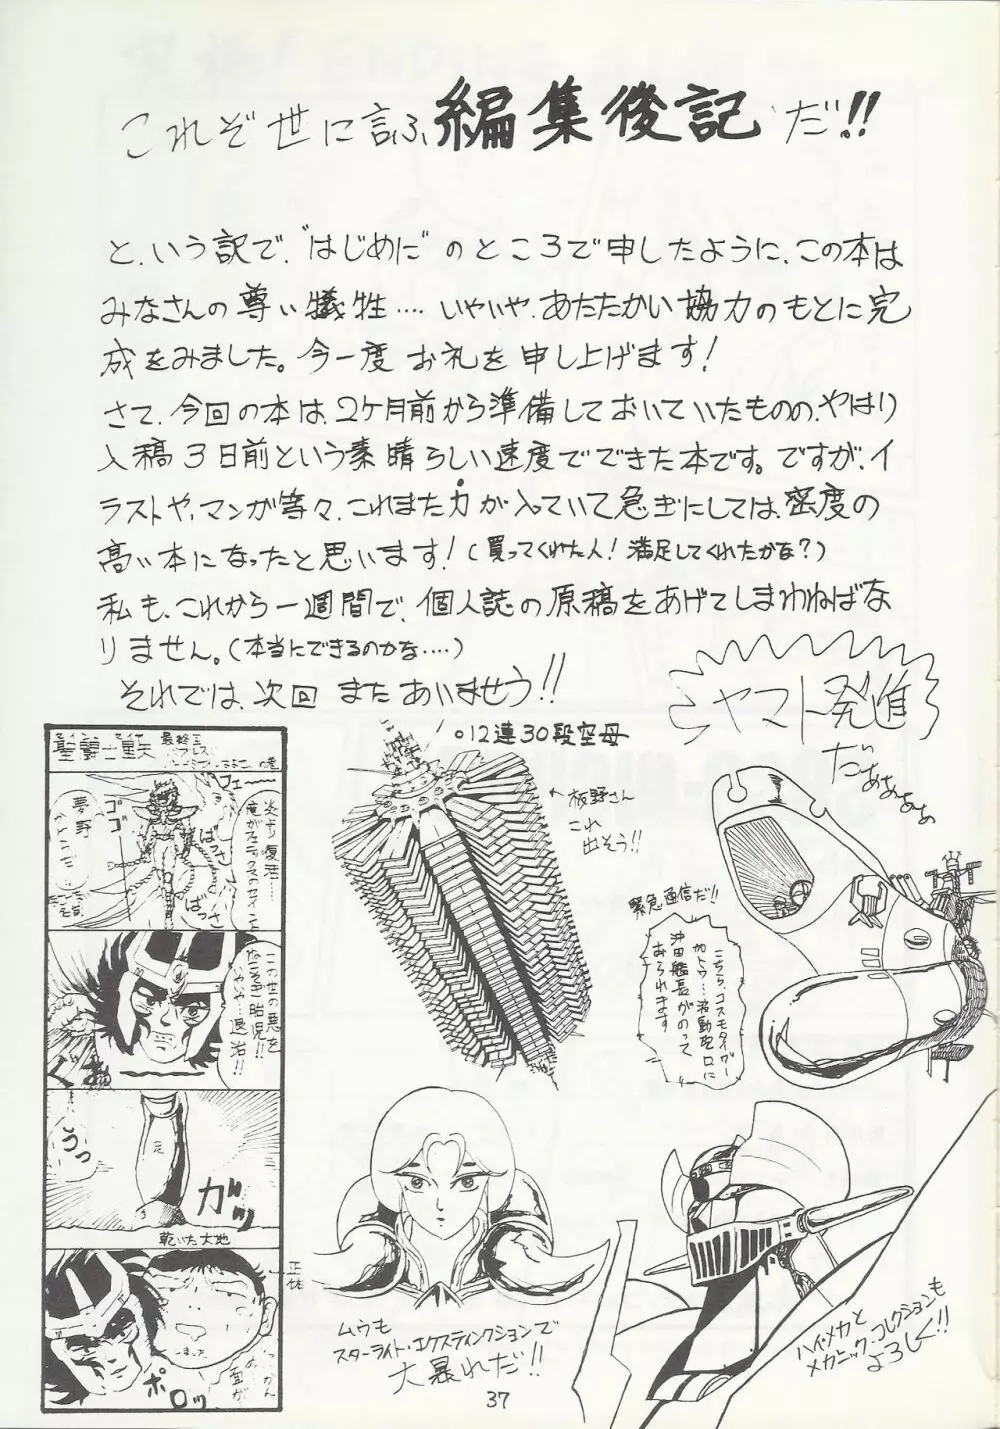 これぞ世に言ふ編集後記だ!!
と、いう訳で、"はじめに"のところで申したように、この本は
みなさんの尊い犠牲‥‥いやいや、あたたかい協力のもとに完
成をみました。今一度お礼を申し上げます!
さて、今回の本は、2ケ月前から準備しておいていたものの、やはり
入稿3日前という素晴らしい速度でできた本です。ですが、イ
ラストや、マンガ等々、これまた力が入っていて急ぎにしては、密度の
高い本になったと思います!(買ってくれた人!満足してくれたかな?)
私も、これから一週間で、個人誌の原稿をあげてしまわねばな
りません。(本当にできるのかな‥‥)
それでは、次回 またあいませう!!
ヤマト発進
だぁぁぁぁ
○12連30段空母
←板野さん
これ
出そう!!
緊急通信だ!!
こちら、コスモタイガー
カトウ…波動砲口に
沖田艦長がのって
おられます
聖闘士重矢
最終章
フェー
炎より復活…
俺がフェニックスの
ゴゴゴ
ばっさ
ばっさ
この世の悪を
胎児!!
退治!!
うっ
ガッ
乾いた大地
正体
しまった
面が
ポロッ
ムウも
スターライト・エクスティンクションで
大暴れだ!!
ハイ・メカと
メカニック・コレクションも
よろしく!!
37